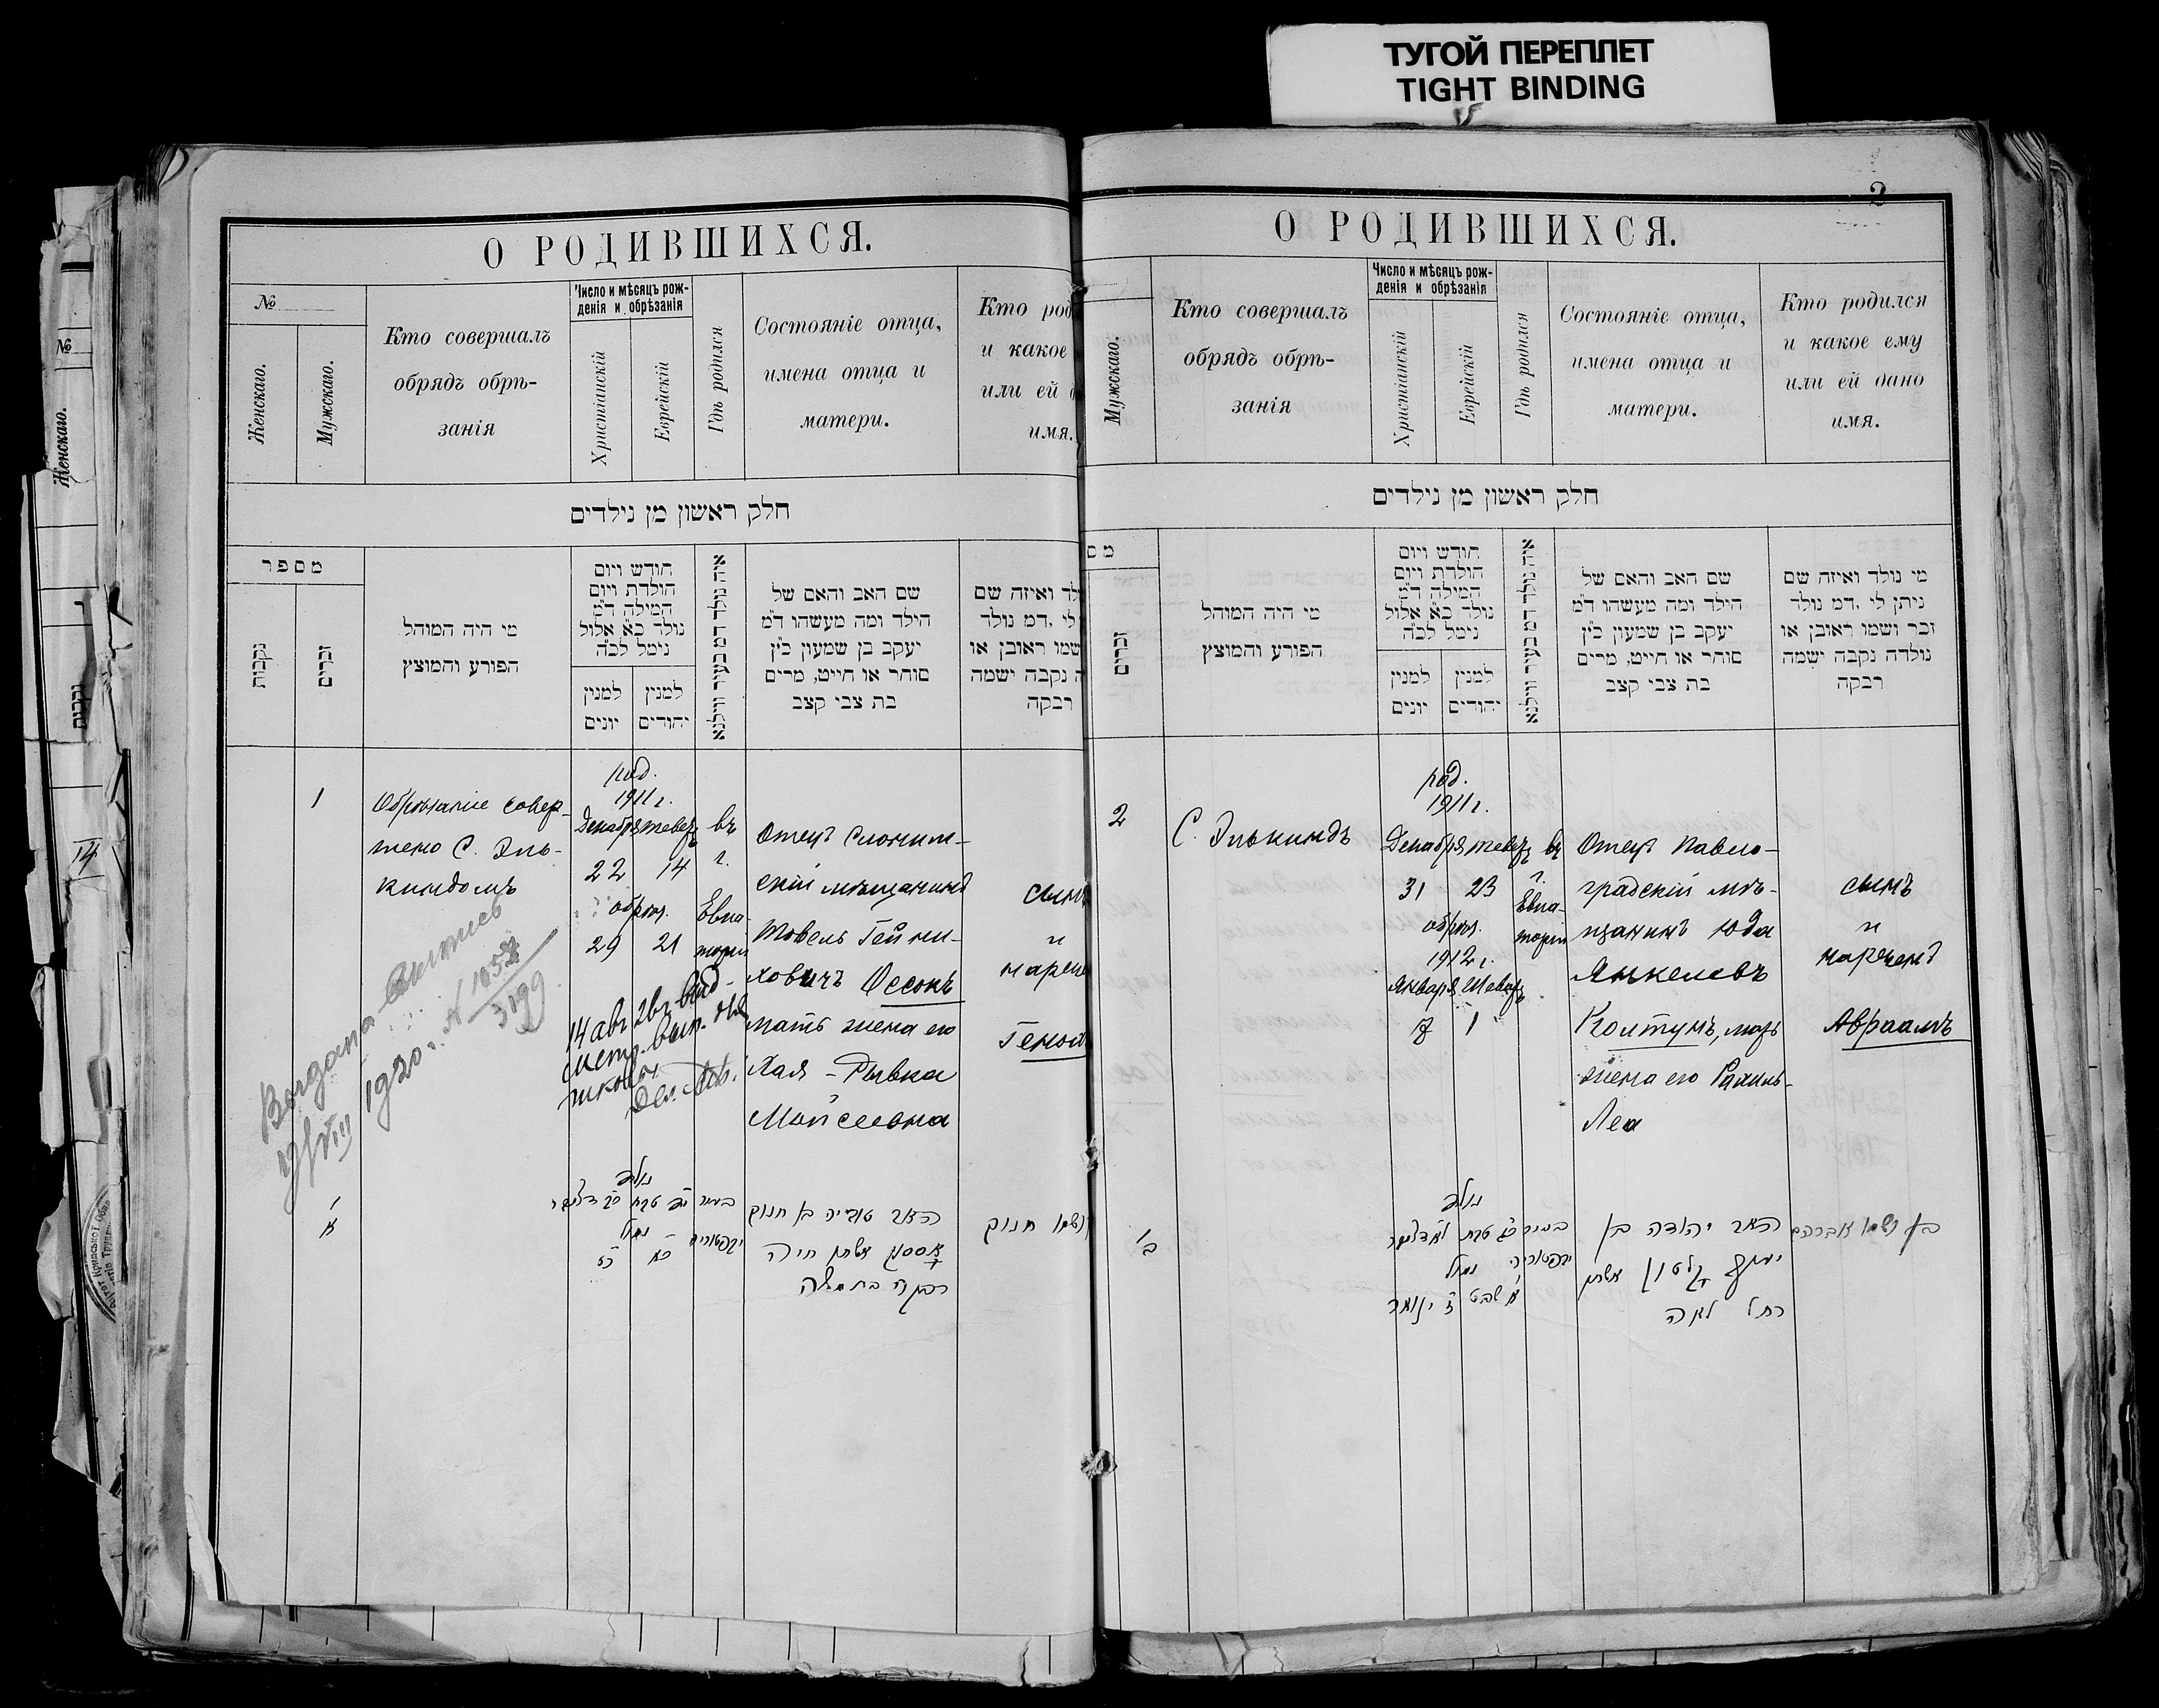 ТУГОЙ ПЕРЕПЛЕТ
TIGHT BINDING
О РОДИВШИХСЯ.
№
Женскаго.
Мужскаго.
Кто совершалъ
обрядъ обрѣ-
занія
Число и мѣсяцъ рож-
денія и обрѣзанія
Христіанскій
Еврейскій
Гдѣ родился
Состояніе отца,
имена отца и
матери.
Кто род
и какое
или ей д
имя.
חלק ראשון מן נילדים
מספר
נקבות
זכרים
מי היה המוהל
הפורע והמוצץ
חודש ויום
הולדת ויום
המילה ד״מ
נולד כ״א אלול
נימל לכ״ה
למנין
יונים
למנין
יהודים
איה נולד דמ בעיר ווילנא
שם האב והאם של
הילד ומה מעשהו ד״מ
יעקב בן שמעון כ״ץ
סוחר או חייט, מרים
בת צבי קצב
לד ואיזה שם
לי, דמ נולד
שמו ראובן או
ה נקבה ישמה
רבקה
1
Обрѣзаніе совер-
шено С. Эль-
киндомъ
род.
1911 г.
Декабря тевез
22 14
обрѣз.
29 21
въ
г.
Евпа-
торіи
Отецъ Слоним-
скій мѣщанинъ
Товель Гейни-
ховичъ Оссокъ
мать жена его
Хая-Рывка
Мойсеевна
сынъ
и
нарече
Генох
14 авг
Выдана выпись
1920 г. № 1052
3199
א
נולד
נמול
בעיר
יבפטוריה
האב טוביה בן חנוך
אססוק אשתו חיה
רבקה בת משה
ושמו חנוך
2
О РОДИВШИХСЯ.
Мужскаго.
Кто совершалъ
обрядъ обрѣ-
занія
Число и мѣсяцъ рож-
денія и обрѣзанія
Христіанскій
Еврейскій
Гдѣ родился
Состояніе отца,
имена отца и
матери.
Кто родился
и какое ему
или ей дано
имя.
חלק ראשון מן נילדים
מס
זכרים
מי היה המוהל
הפורע והמוצץ
חודש ויום
הולדת ויום
המילה ד״מ
נולד כ״א אלול
נימל לכ״ה
למנין
יונים
למנין
יהודים
איה נולד דמ בעיר ווילנא
שם האב והאם של
הילד ומה מעשהו ד״מ
יעקב בן שמעון כ״ץ
סוחר או חייט, מרים
בת צבי קצב
מי נולד ואיזה שם
ניתן לי, דמ נולד
זכר ושמו ראובן או
נולדה נקבה ישמה
רבקה
2
С. Элькиндъ
род.
1911 г.
Декабря тевез
31 23
обрѣз.
1912 г.
Января Шеват
7 1
въ
г.
Евпа-
торіи
Отецъ Павло-
градскій мѣ-
щанинъ Юда
Янкелевъ
Колтунъ, мать
жена его Рахиль-
Леа
сынъ
и
нареченъ
Авраамъ
ב
נולד
כ״ג טבת
נמול
א שבט ז ינואר
בעיר
יבפטוריה
האב יהודה בן
יעקב קלטון אשתו
רחל לאה
בן ושמו אברהם
Женскаго.
№
14